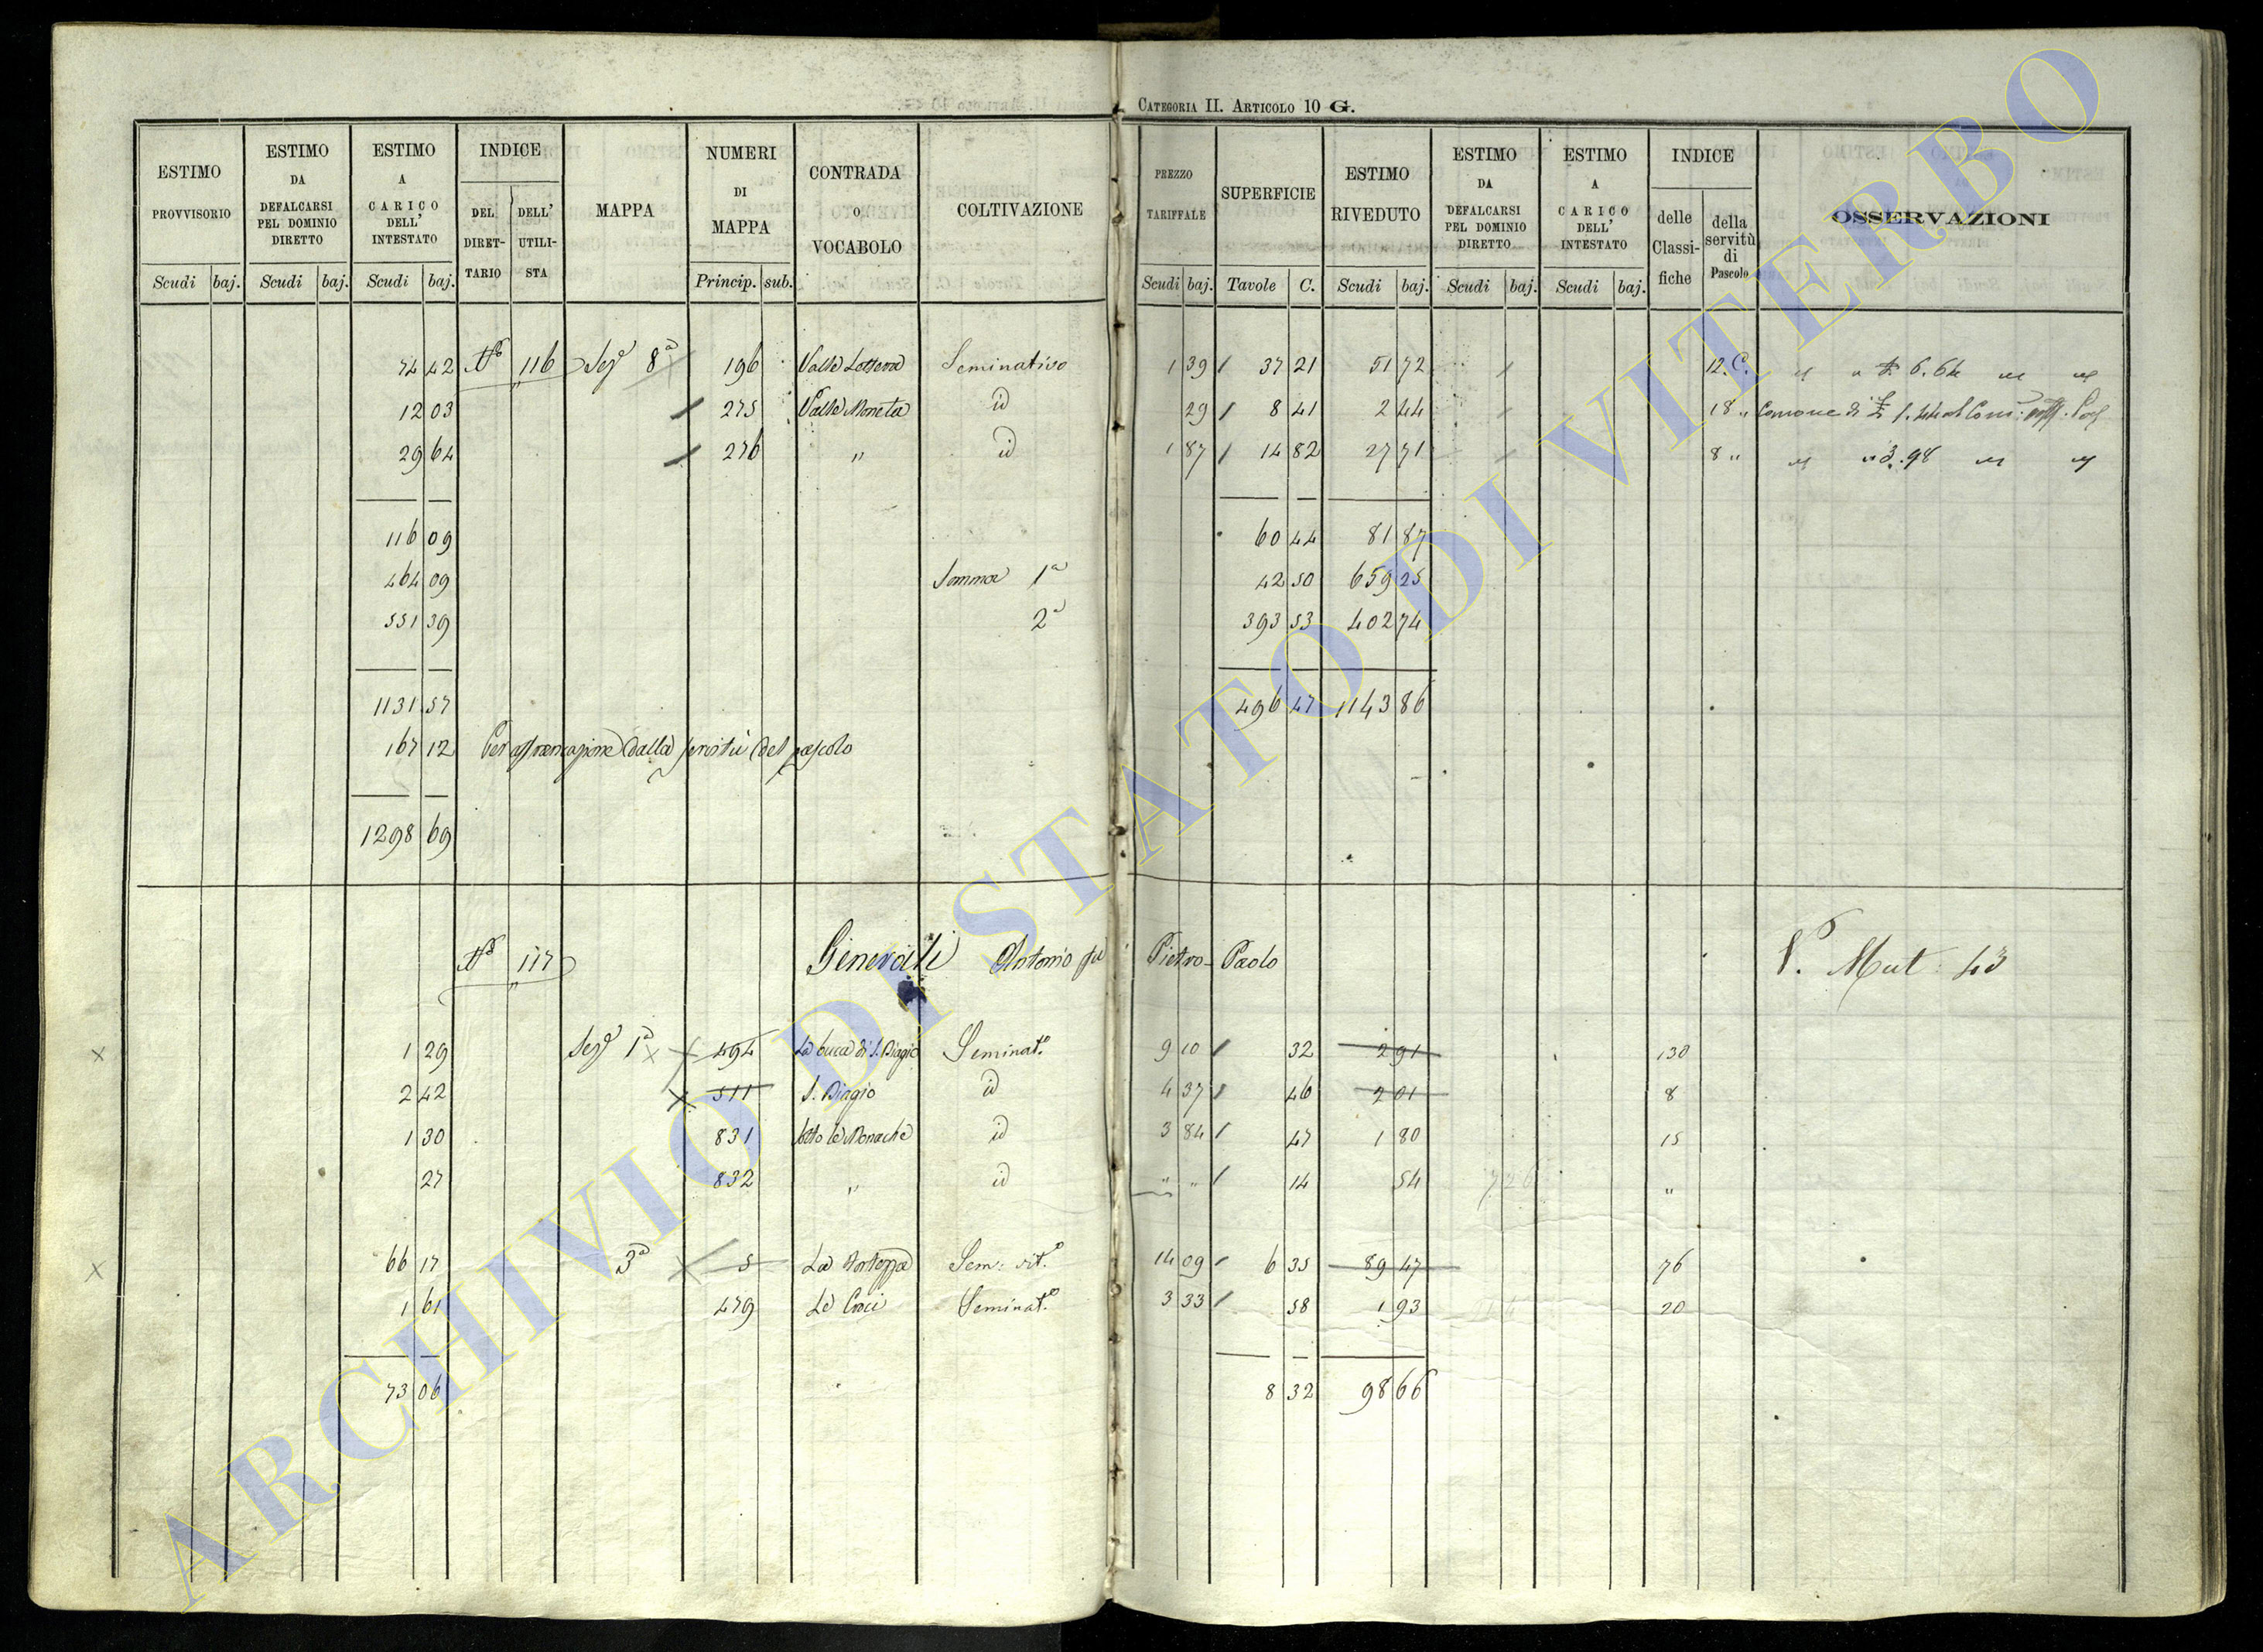 CATEGORIA II. ARTICOLO 10 G.
ESTIMO PROVVISORIO Scudi baj.
ESTIMO DA DEFALCARSI PEL DOMINIO DIRETTO Scudi baj.
ESTIMO A CARICO DELL' INTESTATO Scudi baj.
INDICE DEL DIRETTARIO DELL' UTILISTA
MAPPA
NUMERI DI MAPPA Princip. sub.
CONTRADA O VOCABOLO
COLTIVAZIONE
PREZZO TARIFFALE Scudi baj.
SUPERFICIE Tavole C.
ESTIMO RIVEDUTO Scudi baj.
ESTIMO DA DEFALCARSI PEL DOMINIO DIRETTO Scudi baj.
ESTIMO A CARICO DELL' INTESTATO Scudi baj.
INDICE delle Classifiche della servitù di Pascolo
OSSERVAZIONI
74 42 No 116 Sege 8a 196 Valle Seminativo 1 39 37 21 51 72 12. C. 6.64
12 03 275 Valle Moneta id 29 8 41 2 44 18 " Comone di
29 64 276 " id 1 87 14 82 27 71 8 " 3.98
116 09 60 44 81 87
464 09 Somma 1a 42 50 659 25
551 39 2a 393 53 402 74
1131 57 496 47 1143 86
167 12 Per affrancazione dalla servitù del pascolo
1298 69
No 117 Generali Antonio fu Pietro-Paolo V. Mut: 43
1 29 Sege 1a 494 La buca di S. Biagio Seminat.o 9 10 32 2 91 130
2 42 511 S. Biagio id 4 37 46 2 01 8
1 30 831 Sotto le Monache id 3 84 47 1 80 15
27 832 " id " " 14 54 "
66 17 3a 5 La Sem: vit.o 14 09 6 35 89 47 76
1 61 479 Le Croci Seminat.o 3 33 58 1 93 20
73 06 8 32 98 66
ARCHIVIO DI STATO DI VITERBO